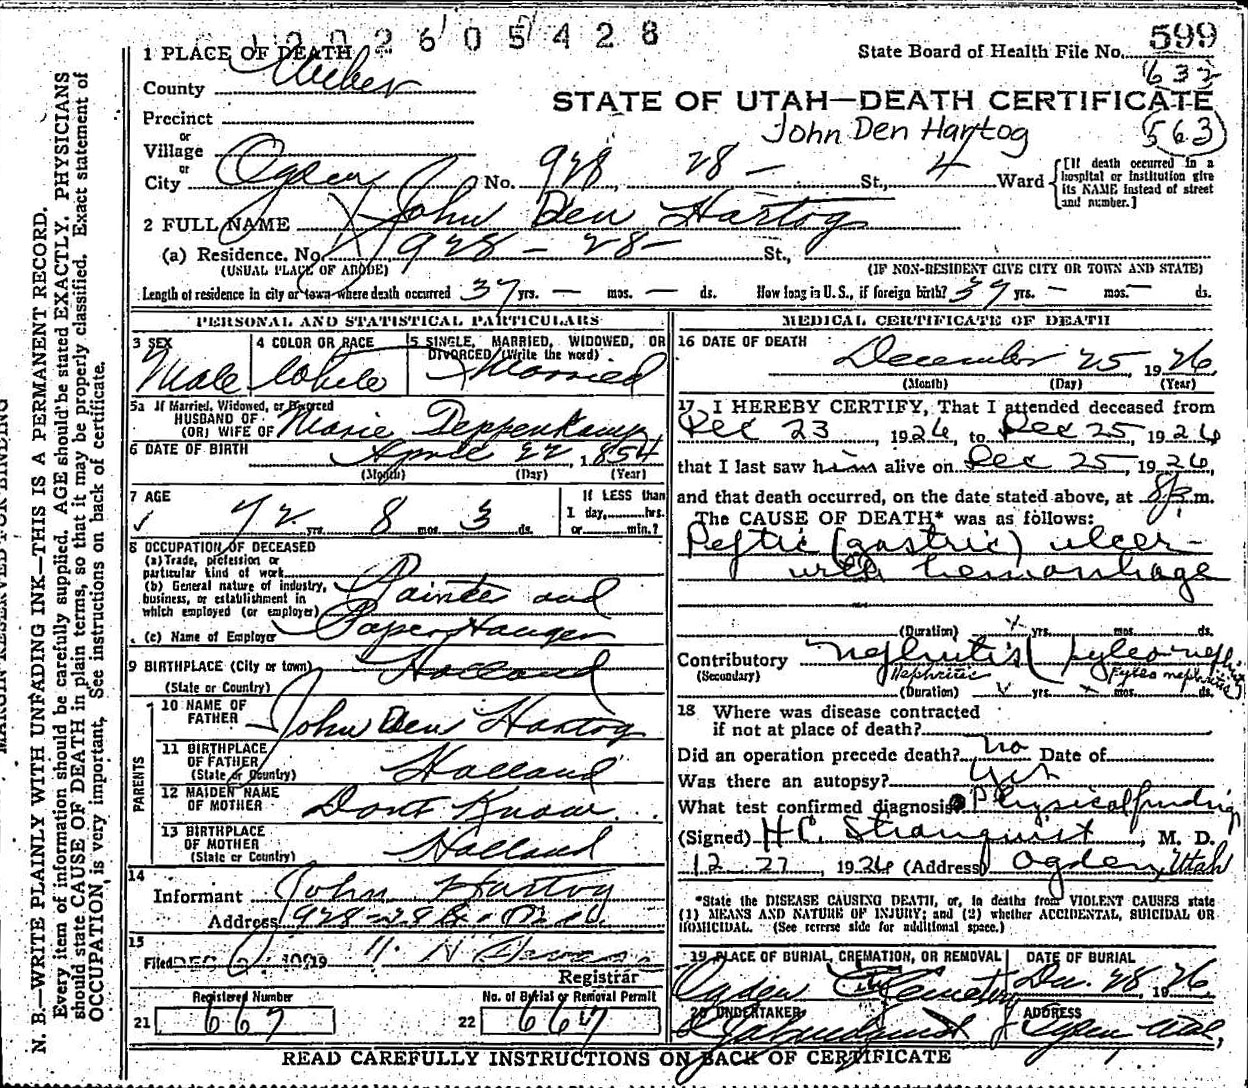 2026 05428
State Board of Health File No. 599
632
563
1 PLACE OF DEATH
County Weber
STATE OF UTAH—DEATH CERTIFICATE
John Den Hartog
Precinct
or
Village
or
City Ogden No. 928 28 - St., 4 Ward
[If death occurred in a hospital or institution give its NAME instead of street and number.]
2 FULL NAME John Den Hartog
(a) Residence. No. 928 - 28 - St.,
(USUAL PLACE OF ABODE) (IF NON-RESIDENT GIVE CITY OR TOWN AND STATE)
Length of residence in city or town where death occurred 37 yrs. — mos. — ds. How long in U.S., if foreign birth? 39 yrs. — mos. — ds.
PERSONAL AND STATISTICAL PARTICULARS
3 SEX Male
4 COLOR OR RACE White
5 SINGLE, MARRIED, WIDOWED, OR DIVORCED (Write the word) Married
5a If Married, Widowed, or Divorced
HUSBAND OF
(OR) WIFE OF Marie Deppenkamp
6 DATE OF BIRTH April 22, 1854
(Month) (Day) (Year)
7 AGE 72 yrs. 8 mos. 3 ds.
If LESS than
1 day, hrs.
or min.?
8 OCCUPATION OF DECEASED
(a) Trade, profession or
particular kind of work
(b) General nature of industry,
business, or establishment in
which employed (or employer) Painter and
(c) Name of Employer Paper Hanger
9 BIRTHPLACE (City or town) Holland
(State or Country)
PARENTS
10 NAME OF
FATHER John Den Hartog
11 BIRTHPLACE
OF FATHER Holland
(State or Country)
12 MAIDEN NAME
OF MOTHER Dont Know
13 BIRTHPLACE
OF MOTHER Holland
(State or Country)
14
Informant John Hartog
Address 928 - 28 St.
15
Filed DEC 19
Registrar
Registered Number
21 667
No. of Burial or Removal Permit
22 667
MEDICAL CERTIFICATE OF DEATH
16 DATE OF DEATH December 25, 1926
(Month) (Day) (Year)
17 I HEREBY CERTIFY, That I attended deceased from
Dec 23, 1926, to Dec 25, 1926
that I last saw him alive on Dec 25, 1926,
and that death occurred, on the date stated above, at 8 p.m.
The CAUSE OF DEATH* was as follows:
Peptic (gastric) ulcer -
with hemorrhage
(Duration) yrs. mos. ds.
Contributory Nephritis (pyleo-neph
(Secondary) Nephritis Pyleo nephritis
(Duration) yrs. mos. ds.
18 Where was disease contracted
if not at place of death?
Did an operation precede death? no Date of
Was there an autopsy? yes
What test confirmed diagnosis Physical finding
(Signed) H C. Stranquist, M. D.
12 27, 1926 (Address) Ogden, Utah
*State the DISEASE CAUSING DEATH, or, in deaths from VIOLENT CAUSES state
(1) MEANS AND NATURE OF INJURY; and (2) whether ACCIDENTAL, SUICIDAL OR
HOMICIDAL. (See reverse side for additional space.)
19 PLACE OF BURIAL, CREMATION, OR REMOVAL
Ogden City Cemetery
DATE OF BURIAL
Dec. 28 1926.
20 UNDERTAKER
ADDRESS
Ogden Utah,
READ CAREFULLY INSTRUCTIONS ON BACK OF CERTIFICATE
MARGIN RESERVED FOR BINDING
N. B.—WRITE PLAINLY WITH UNFADING INK—THIS IS A PERMANENT RECORD.
Every item of information should be carefully supplied. AGE should be stated EXACTLY. PHYSICIANS
should state CAUSE OF DEATH in plain terms, so that it may be properly classified. Exact statement of
OCCUPATION is very important. See instructions on back of certificate.